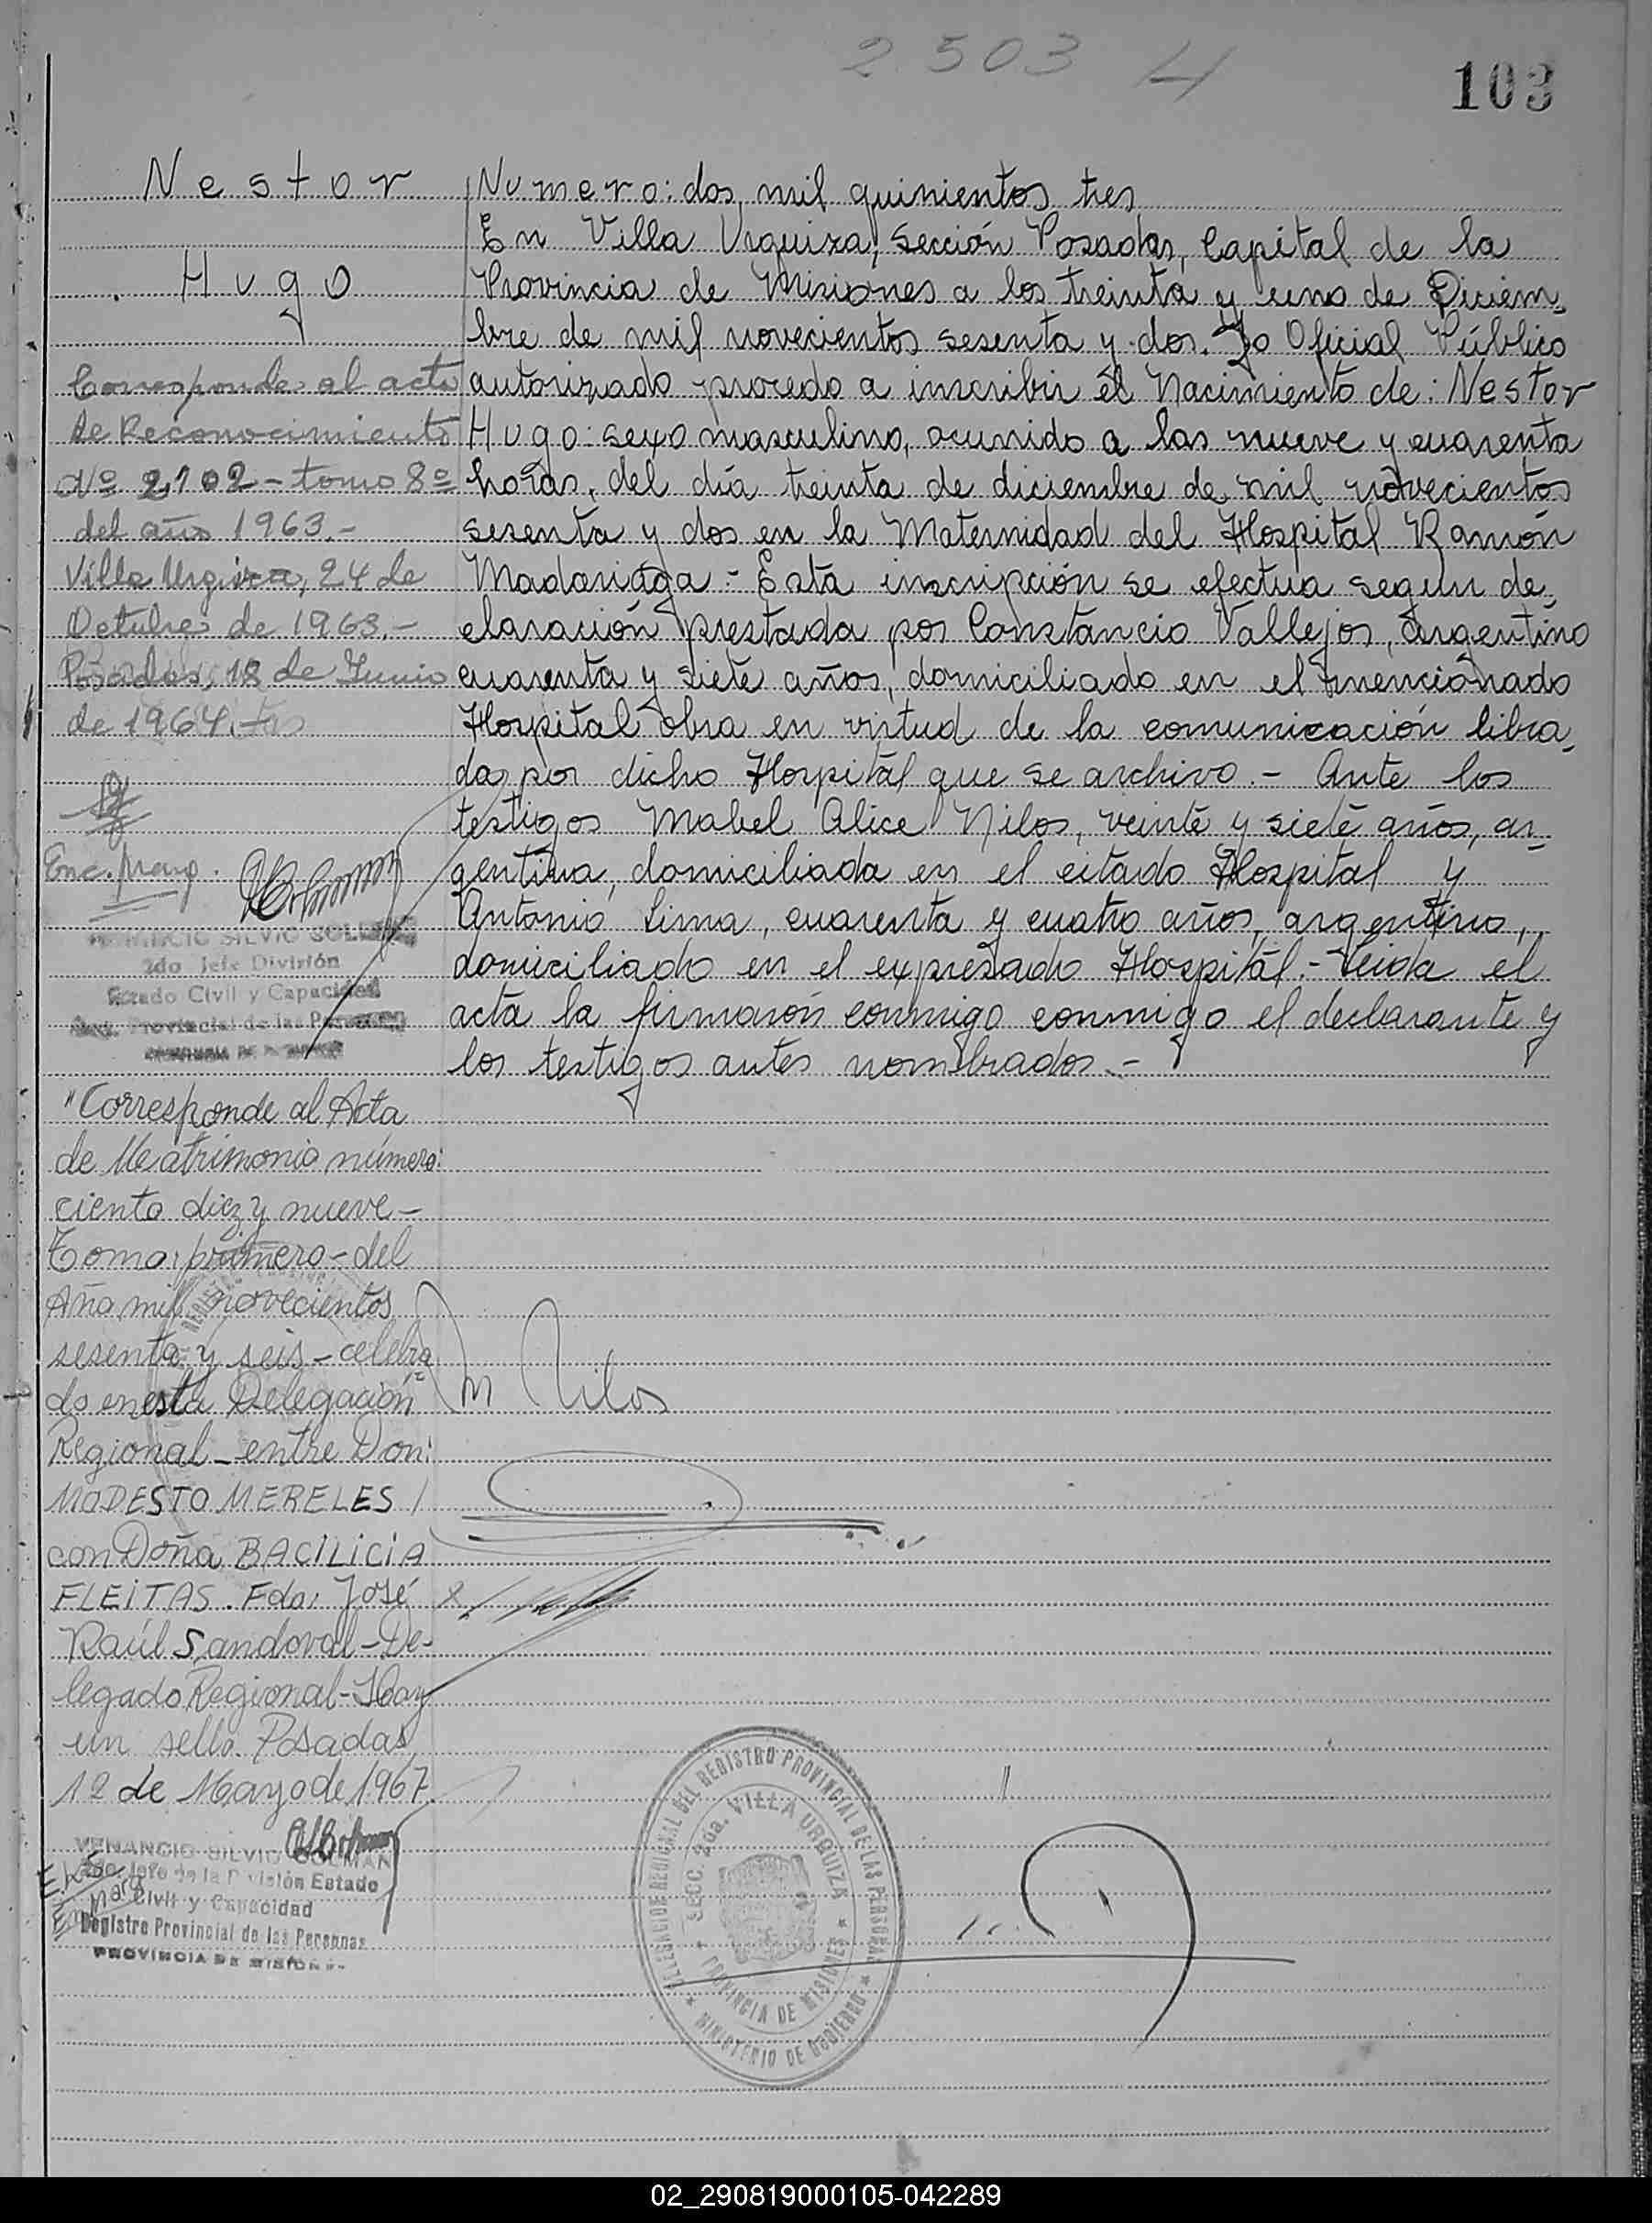 2.503
103
Nestor
Hugo
Corresponde al acta
de Reconocimiento
Nº 2102 - tomo 8º
del año 1963.-
Villa Urquiza, 24 de
Octubre de 1963.-
Posadas, 18 de Junio
de 1964.-
Enc. marg.
VENANCIO SILVIO COLMAN
2do Jefe División
Estado Civil y Capacidad
Reg. Provincial de las Personas
"Corresponde al Acta
de Matrimonio número:
ciento diez y nueve-
Tomo: primero - del
Año mil novecientos
sesenta y seis - celebra
do en esta Delegación
Regional - entre Don:
MODESTO MERELES
con Doña BACILICIA
FLEITAS. Fdo: José
Raúl Sandoval - De-
legado Regional - Hay
un sello. Posadas,
12 de Mayo de 1967.
VENANCIO SILVIO COLMAN
2do Jefe de la División Estado
Civil y Capacidad
Registro Provincial de las Personas
PROVINCIA DE MISIONES
Numero: dos mil quinientos tres
En Villa Urquiza, Sección Posadas, Capital de la
Provincia de Misiones a los treinta y uno de Diciem-
bre de mil novecientos sesenta y dos. Yo Oficial Público
autorizado procedo a inscribir el Nacimiento de: Nestor
Hugo: sexo masculino, ocurrido a las nueve y cuarenta
horas, del día treinta de diciembre de mil novecientos
sesenta y dos en la Maternidad del Hospital Ramón
Madariaga.- Esta inscripción se efectua segun de-
claración prestada por Constancio Vallejos, argentino
cuarenta y siete años, domiciliado en el mencionado
Hospital obra en virtud de la comunicación libra-
da por dicho Hospital que se archivo.- Ante los
testigos Mabel Alice Nilos, veinte y siete años, ar-
gentina, domiciliada en el citado Hospital y
Antonio Lima, cuarenta y cuatro años, argentino,
domiciliado en el expresado Hospital.- Leida el
acta la firmarón conmigo conmigo el declarante y
los testigos antes nombrados.-
M Nilos
DELEGACION REGIONAL DEL REGISTRO PROVINCIAL DE LAS PERSONAS
SECC. 2da. VILLA URQUIZA
PROVINCIA DE MISIONES
MINISTERIO DE GOBIERNO
02_290819000105-042289